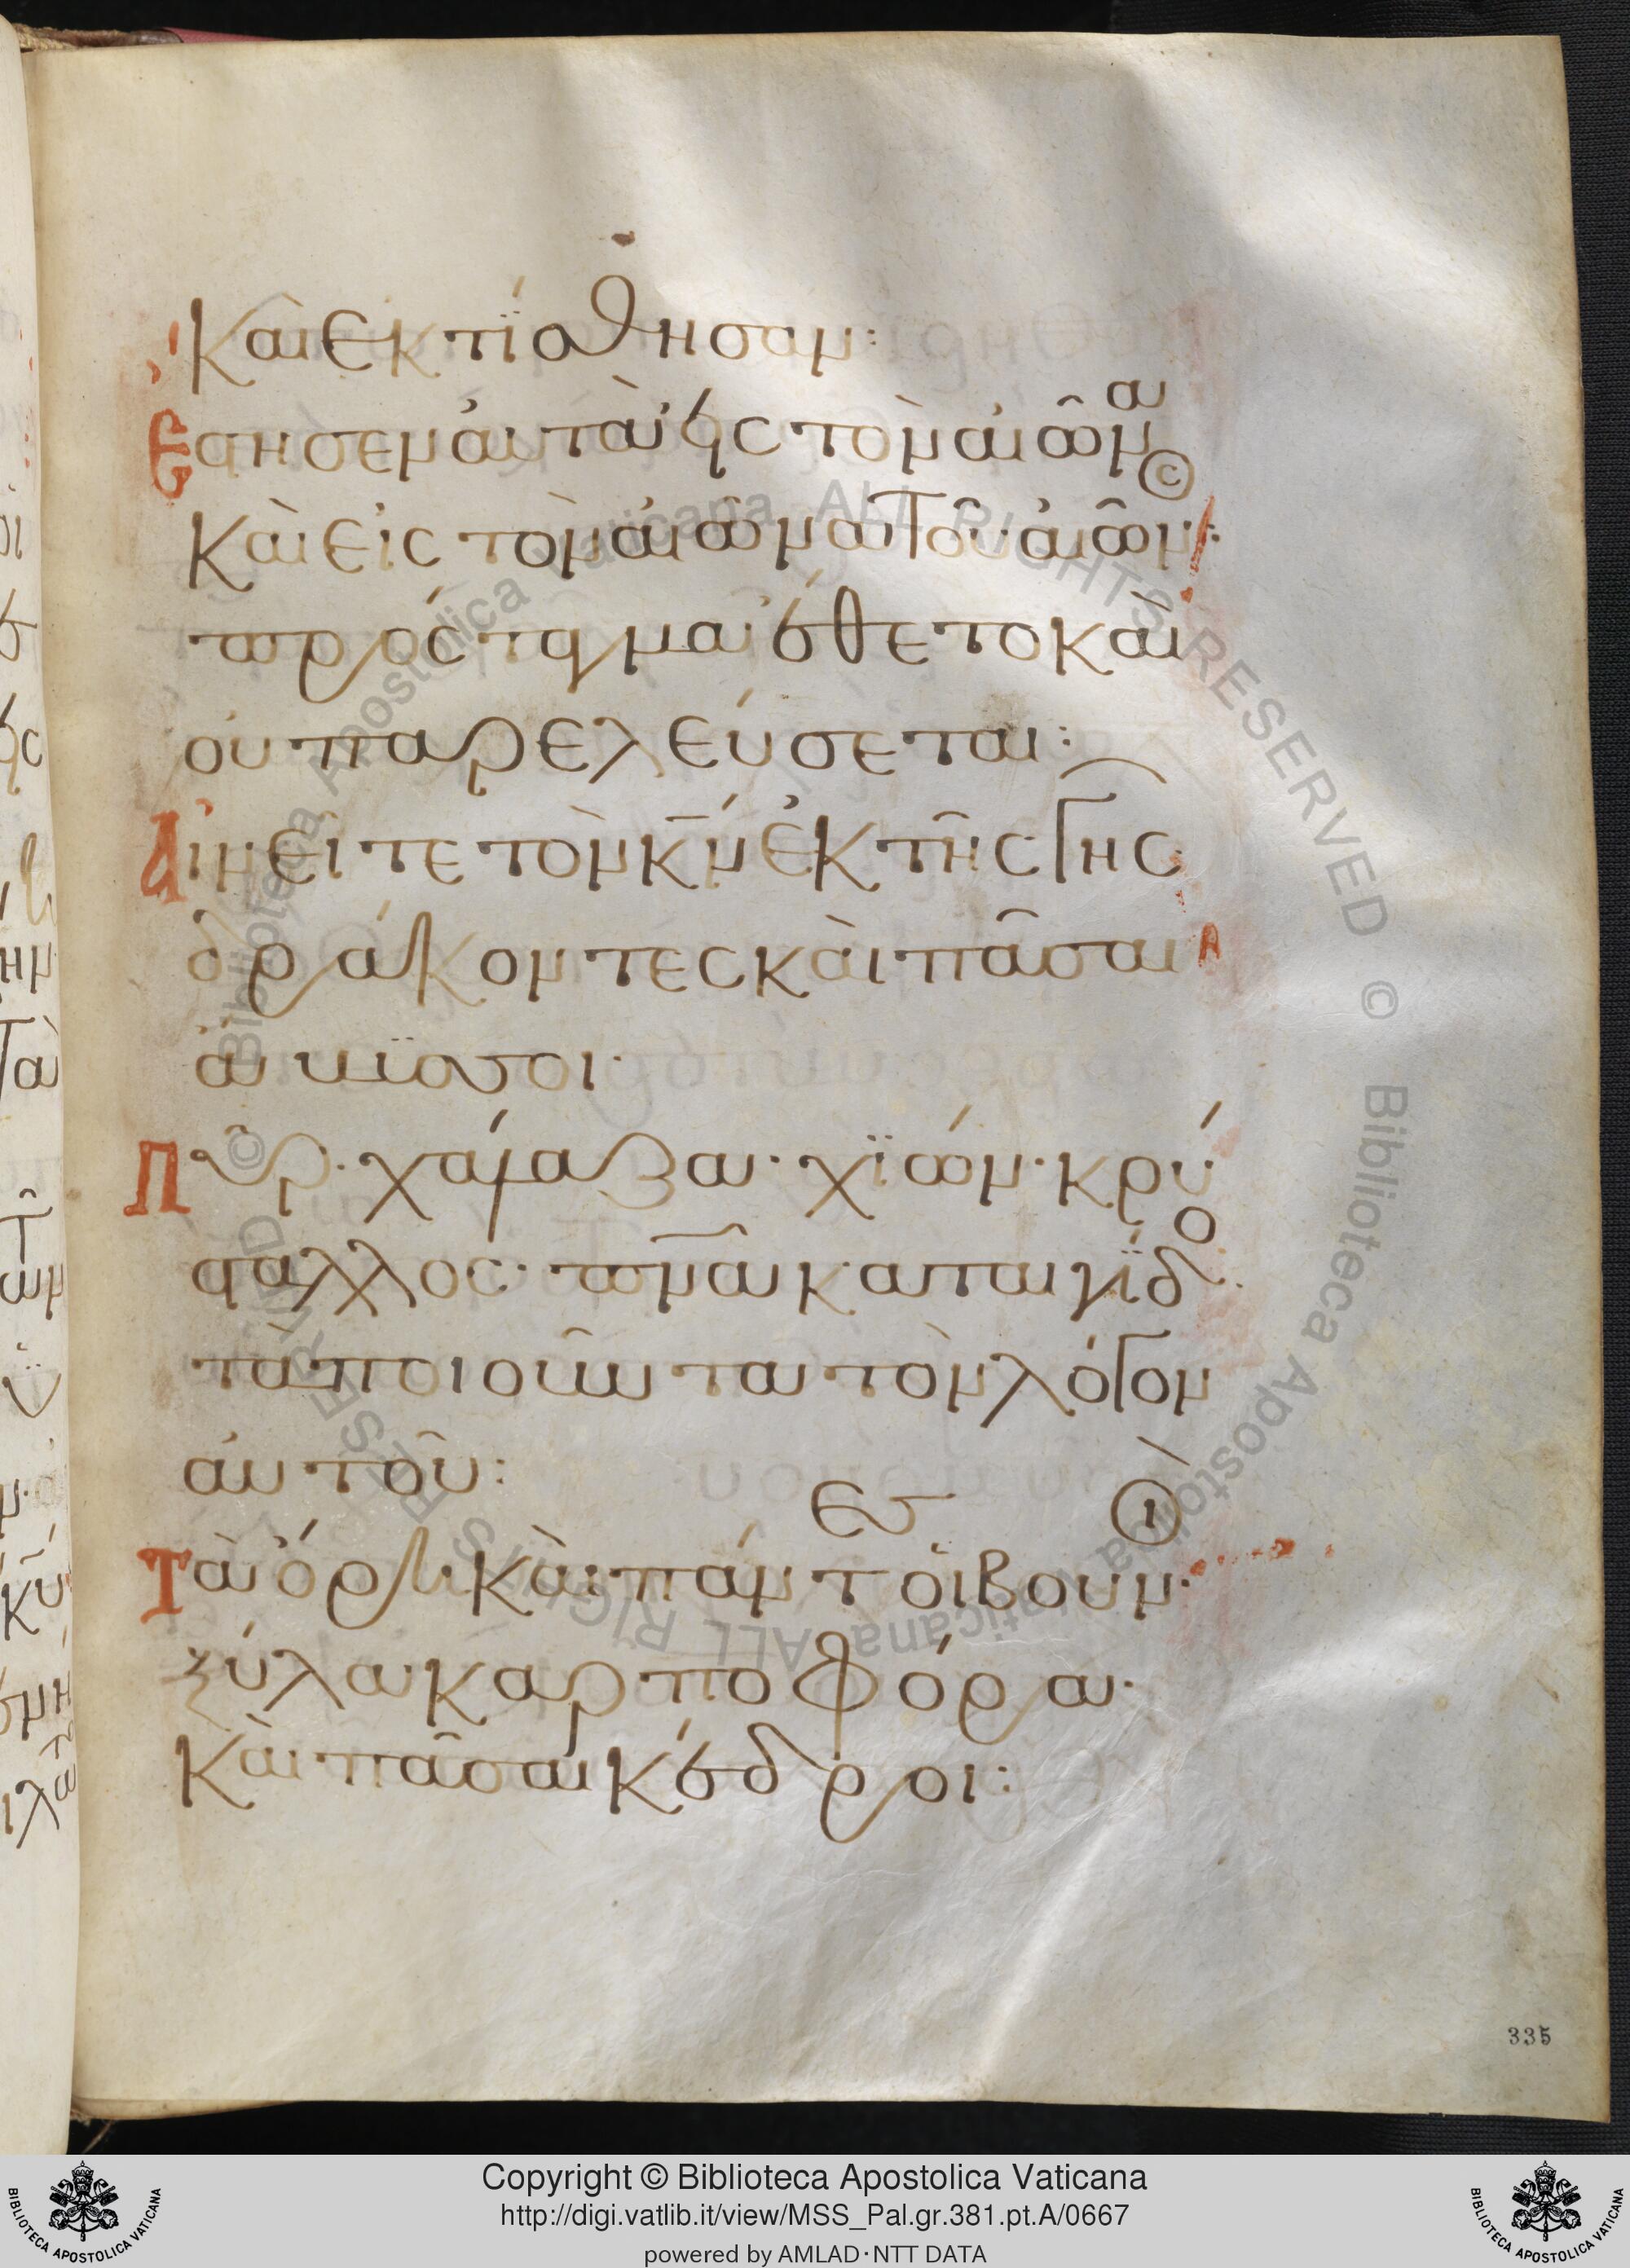 καὶ ἐκτίσθησαν:
Ἔστησεν αὐτὰ εἰς τὸν αἰῶνα
καὶ εἰς τὸν αἰῶνα τοῦ αἰῶν·
πρόσταγμα ἔθετο καὶ
οὐ παρελεύσεται:
Αἰνεῖτε τὸν κ̅ν̅ ἐκ τῆς γῆς
δράκοντες καὶ πᾶσαι
ἄβυσσοι·
Πῦρ· χάλαζα· χϊών· κρύ
σταλλος· πν̅α καταιγίδο·
τὰ ποιοῦντα τὸν λόγον
αὐτοῦ:
Τὰ ὄρη καὶ πάντες οἱ βουν·
ξύλα καρποφόρα·
καὶ πᾶσαι κέδροι:
335
Copyright © Biblioteca Apostolica Vaticana
http://digi.vatlib.it/view/MSS_Pal.gr.381.pt.A/0667
powered by AMLAD·NTT DATA
BIBLIOTECA APOSTOLICA VATICANA
BIBLIOTECA APOSTOLICA VATICANA
© Biblioteca Apostolica Vaticana ALL RIGHTS RESERVED © Biblioteca Apostolica Vaticana ALL RIGHTS RESERVED